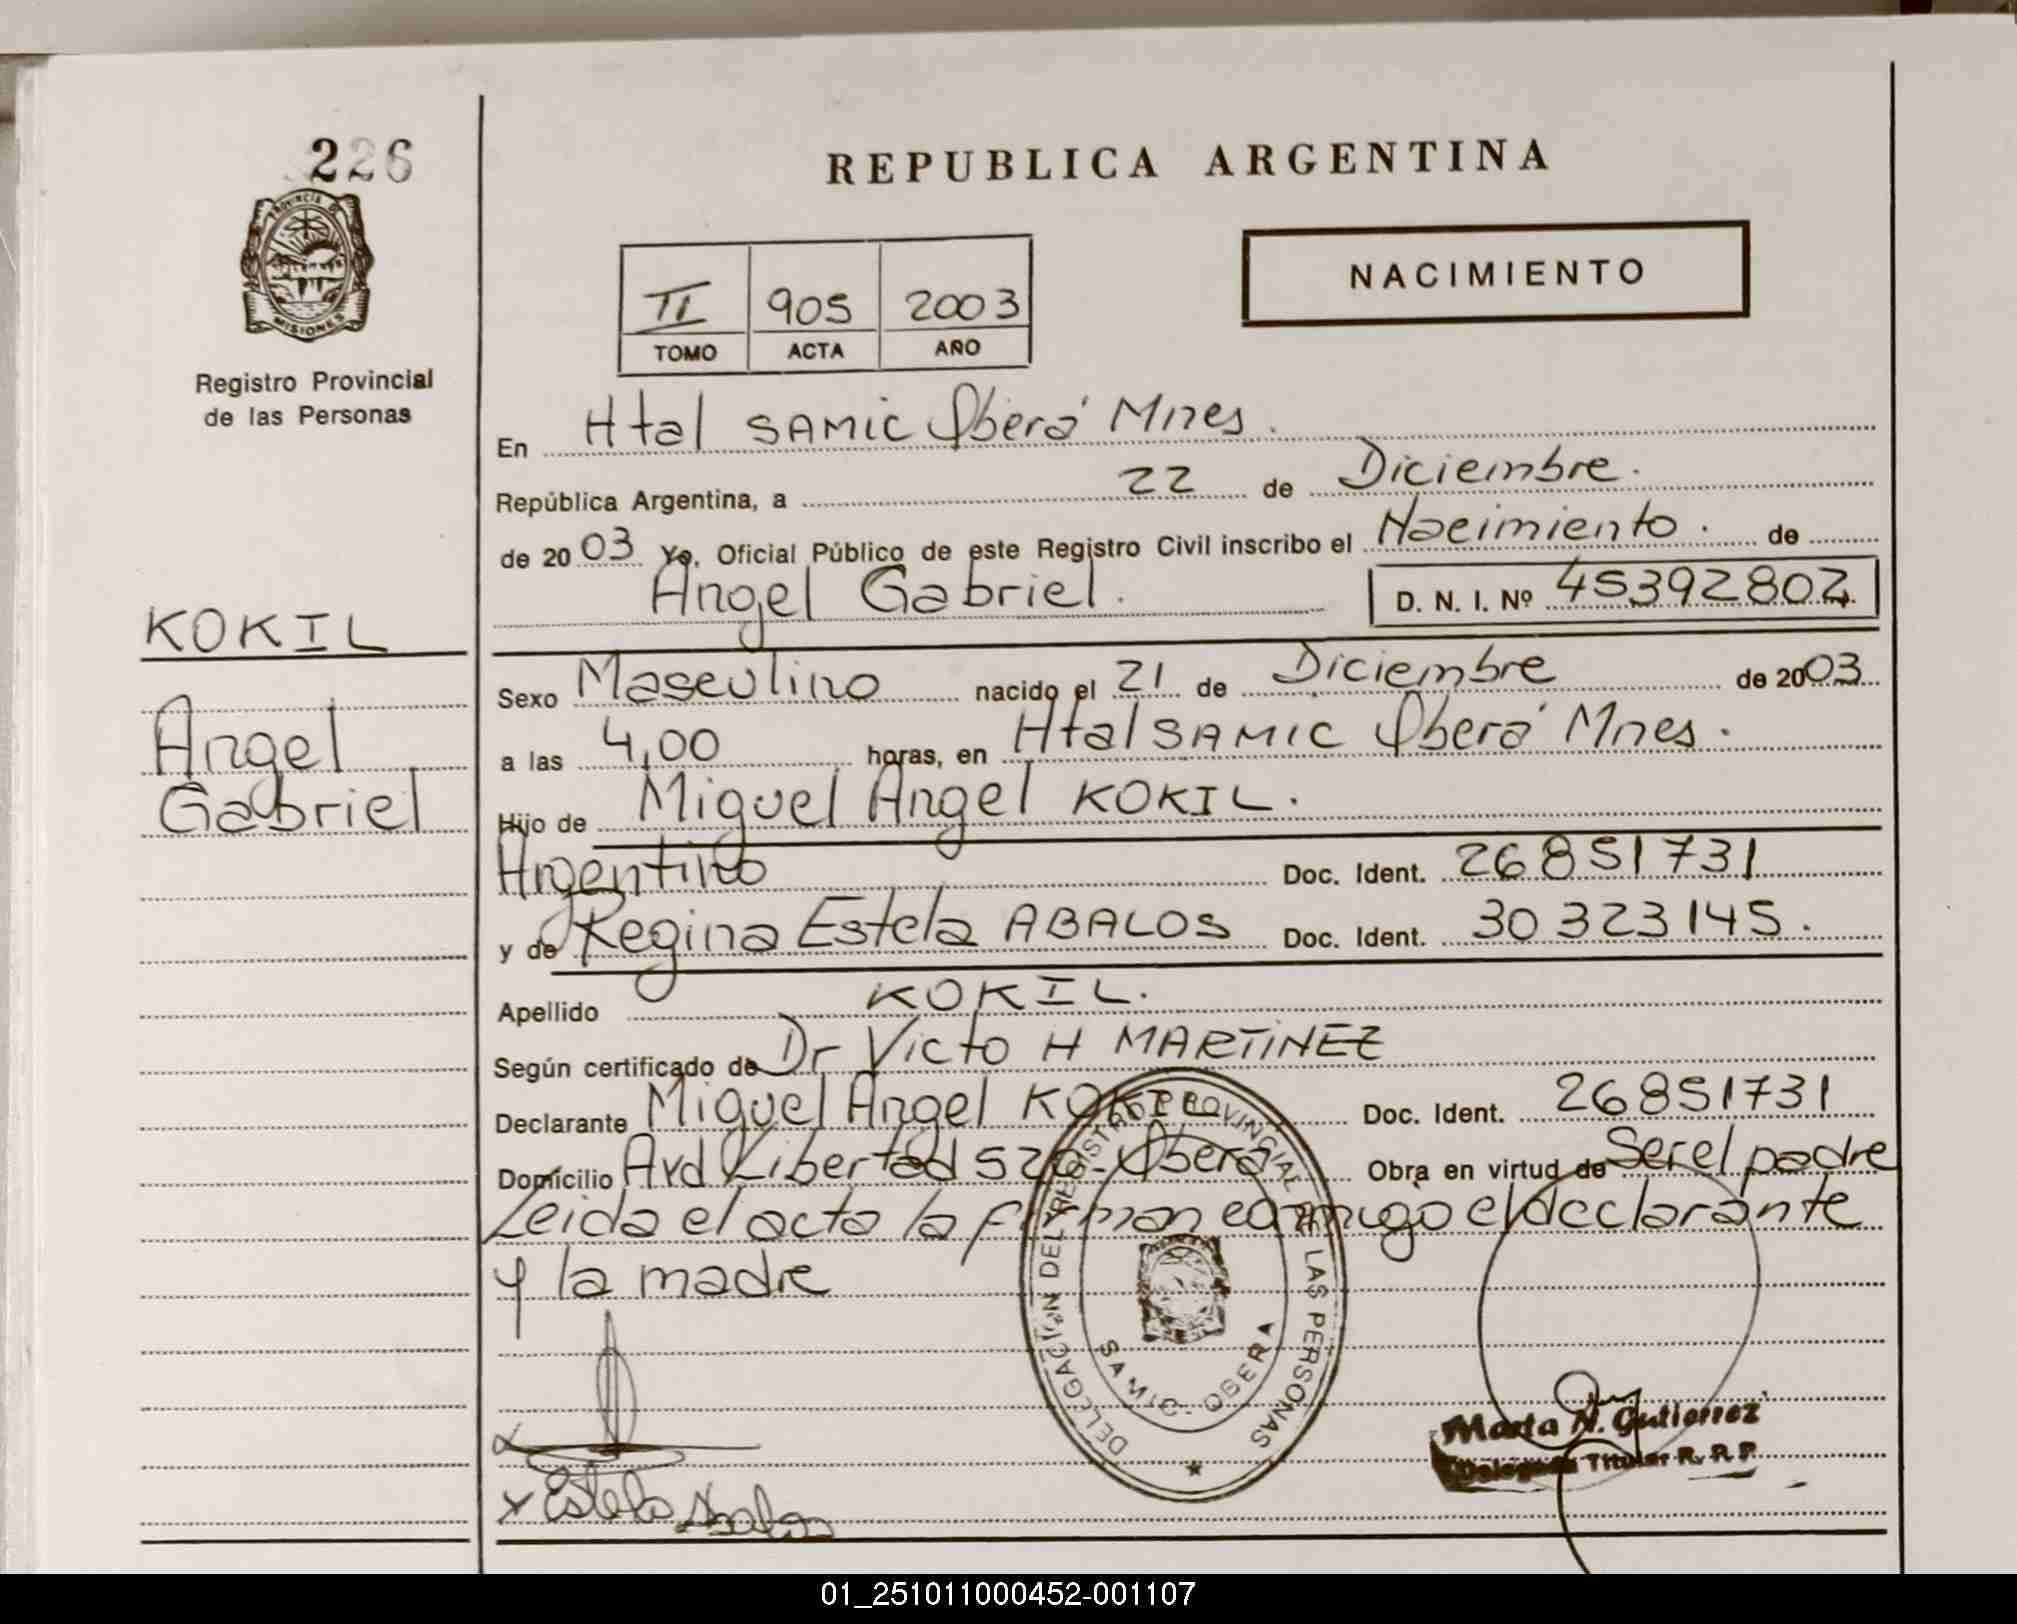 226
PROVINCIA DE
MISIONES
Registro Provincial
de las Personas
REPUBLICA ARGENTINA
NACIMIENTO
II 905 2003
TOMO ACTA AÑO
En Htal SAMIC Oberá Mnes.
República Argentina, a 22 de Diciembre.
de 2003 Yo, Oficial Público de este Registro Civil inscribo el Nacimiento. de
Angel Gabriel. D. N. I. Nº 45392802.
KOKIL
Angel
Gabriel
Sexo Masculino nacido el 21 de Diciembre de 2003
a las 4,00 horas, en Htal SAMIC Oberá Mnes.
Hijo de Miguel Angel KOKIL.
Argentino Doc. Ident. 26851731
y de Regina Estela ABALOS Doc. Ident. 30323145.
Apellido KOKIL.
Según certificado de Dr Victo H MARTINEZ
Declarante Miguel Angel KOKIL Doc. Ident. 26851731
Domicilio Avd Libertad 520 - Oberá Obra en virtud de Ser el padre
Leida el acta la firman conmigo el declarante
y la madre
DELEGACION DEL REGISTRO PROVINCIAL DE LAS PERSONAS
SAMIC - OBERA
x Estela Abalos
Marta N. Gutierrez
Delegada Titular R. P. P.
01_251011000452-001107